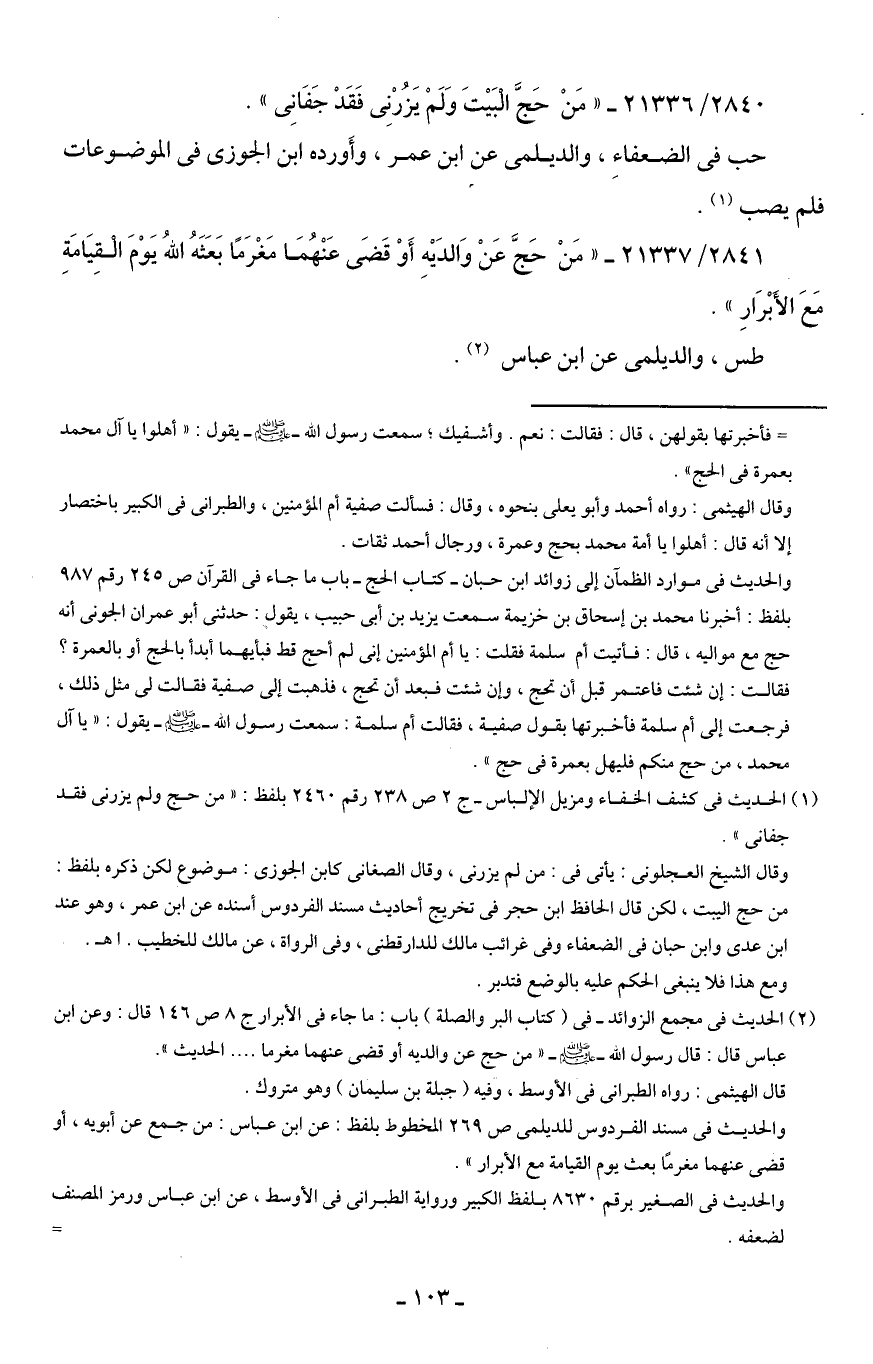 ٢١٣٣٦/٢٨٤٠ ـ « مَنْ حَجَّ الْبَيْتَ وَلَمْ يَزُرْنِى فَقَدْ جَفَانِى » .
حب فى الضعفاءِ ، والديلمى عن ابن عمر ، وأَورده ابن الجوزى فى الموضوعات
فلم يصب (١) .
٢١٣٣٧/٢٨٤١ ـ « مَنْ حَجَّ عَنْ وَالدَيْهِ أَوْ قَضَى عَنْهُمَا مَغْرَمًا بَعَثَهُ اللهُ يَوْمَ الْقِيَامَةِ
مَعَ الأَبْرَارِ » .
طس ، والديلمى عن ابن عباس (٢) .
= فأخبرتها بقولهن ، قال : فقالت : نعم . وأشفيك ؛ سمعت رسول الله ـ ﷺ ـ يقول : « أهلوا يا آل محمد
بعمرة فى الحج» .
وقال الهيثمى : رواه أحمد وأبو يعلى بنحوه ، وقال : فسألت صفية أم المؤمنين ، والطبرانى فى الكبير باختصار
إلا أنه قال : أهلوا يا أمة محمد بحج وعمرة ، ورجال أحمد ثقات .
والحديث فى موارد الظمآن إلى زوائد ابن حبان ـ كتاب الحج ـ باب ما جاء فى القرآن ص ٢٤٥ رقم ٩٨٧
بلفظ : أخبرنا محمد بن إسحاق بن خزيمة سمعت يزيد بن أبى حبيب ، يقول : حدثنى أبو عمران الجونى أنه
حج مع مواليه ، قال : فأتيت أم سلمة فقلت : يا أم المؤمنين إنى لم أحج قط فبأيهما أبدأ بالحج أو بالعمرة ؟
فقالت : إن شئت فاعتمر قبل أن تحج ، وإن شئت فبعد أن تحج ، فذهبت إلى صفية فقالت لى مثل ذلك ،
فرجعت إلى أم سلمة فأخبرتها بقول صفية ، فقالت أم سلمة : سمعت رسول الله ـ ﷺ ـ يقول : « يا آل
محمد ، من حج منكم فليهل بعمرة فى حج » .
(١) الحديث فى كشف الخفاء ومزيل الإلباس ـ ج ٢ ص ٢٣٨ رقم ٢٤٦٠ بلفظ : « من حج ولم يزرنى فقد
جفانى » .
وقال الشيخ العجلونى : يأتى فى : من لم يزرنى ، وقال الصغانى كابن الجوزى : موضوع لكن ذكره بلفظ :
من حج البيت ، لكن قال الحافظ ابن حجر فى تخريج أحاديث مسند الفردوس أسنده عن ابن عمر ، وهو عند
ابن عدى وابن حبان فى الضعفاء وفى غرائب مالك للدارقطنى ، وفى الرواة ، عن مالك للخطيب . ا هـ .
ومع هذا فلا ينبغى الحكم عليه بالوضع فتدبر .
(٢) الحديث فى مجمع الزوائد ـ فى ( كتاب البر والصلة ) باب : ما جاء فى الأبرار ج ٨ ص ١٤٦ قال : وعن ابن
عباس قال : قال رسول الله ـ ﷺ ـ « من حج عن والديه أو قضى عنهما مغرما .... الحديث ».
قال الهيثمى : رواه الطبرانى فى الأوسط ، وفيه ( جبلة بن سليمان ) وهو متروك .
والحديث فى مسند الفردوس للديلمى ص ٢٦٩ المخطوط بلفظ : عن ابن عباس : من جمع عن أبويه ، أو
قضى عنهما مغرمًا بعث يوم القيامة مع الأبرار » .
والحديث فى الصغير برقم ٨٦٣٠ بلفظ الكبير ورواية الطبرانى فى الأوسط ، عن ابن عباس ورمز المصنف
لضعفه . =
ـ ١٠٣ ـ